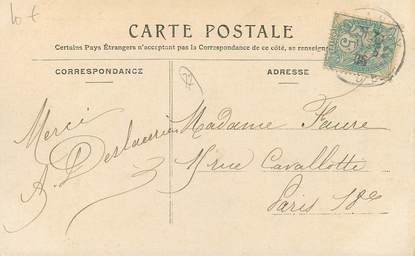 10 €
CARTE POSTALE
Certains Pays Étrangers n'acceptant pas la Correspondance de ce côté, se renseigner
CORRESPONDANCE
ADRESSE
Merci
A. Deslaurier
Madame Faure
rue Cavallotti
Paris 18e